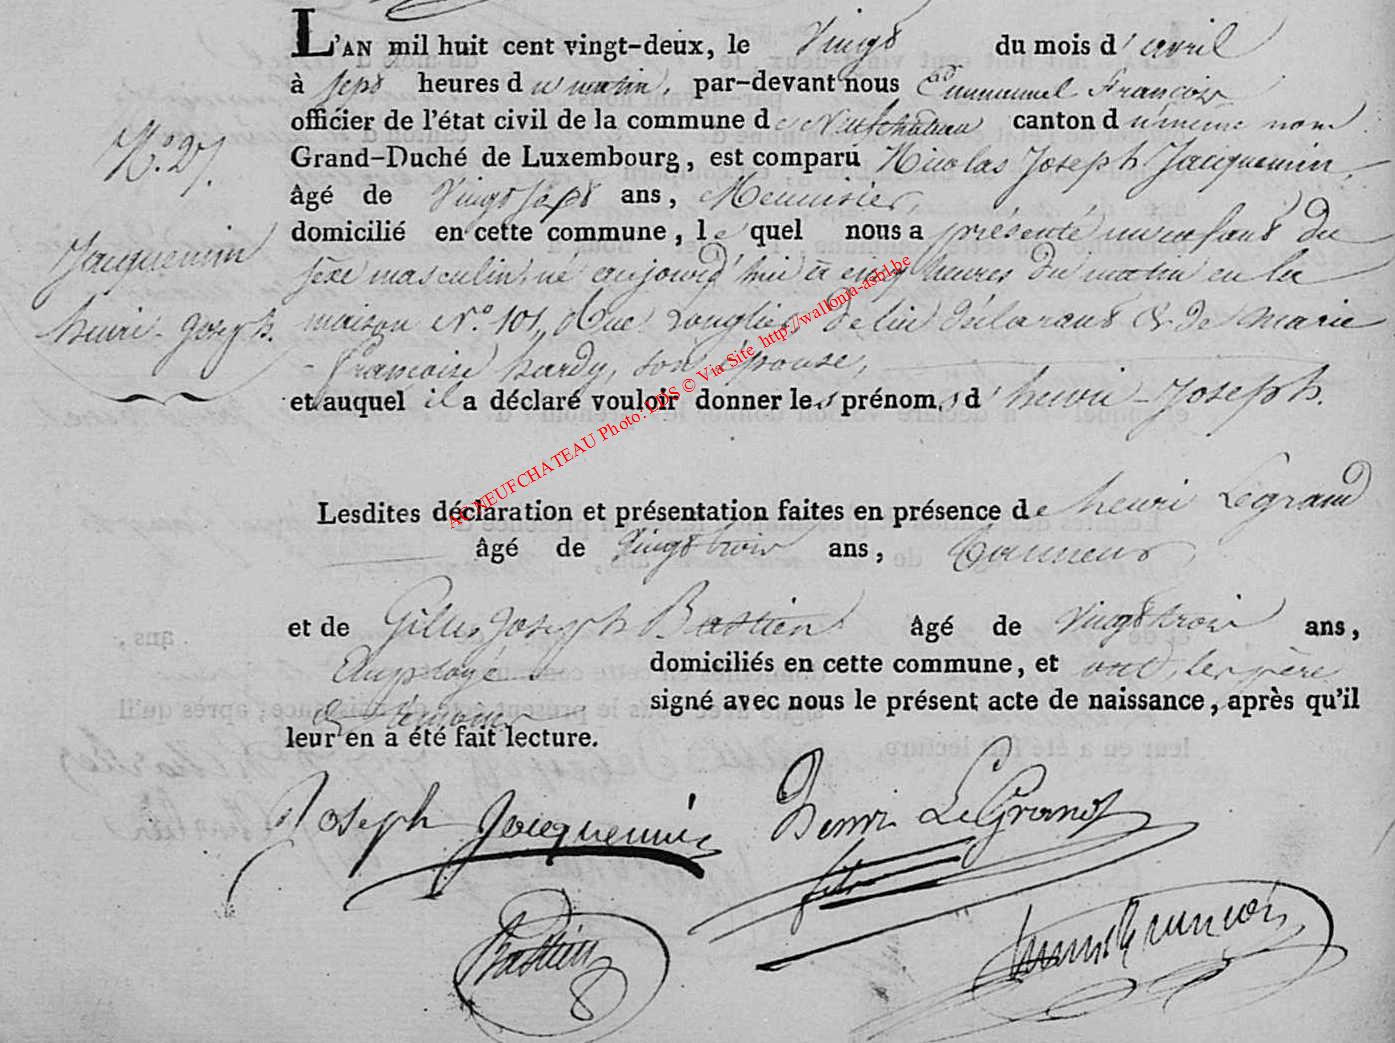 L'AN mil huit cent vingt-deux, le Vingt du mois d'avril
à sept heures du matin, par-devant nous Emmanuel François
officier de l'état civil de la commune de Neufchateau canton du même nom
N.o 27.
Grand-Duché de Luxembourg, est comparu Nicolas Joseph Jacquemin,
âgé de Vingt sept ans, Menuisier,
domicilié en cette commune, lequel nous a présenté un enfant du
Jacquemin
henri-Joseph.
sexe masculin, né aujourd'hui à cinq heures du matin en la
maison N.o 101, Rue Longlier, de lui déclarant & de marie
françoise hardy, son épouse,
et auquel il a déclaré vouloir donner les prénoms d'henri-Joseph.
Lesdites déclaration et présentation faites en présence de henri Legrand
âgé de Vingt trois ans, Tanneur
et de Gilles Joseph Bastien âgé de Vingt trois ans,
Employé domiciliés en cette commune, et ont, les père
& témoins signé avec nous le présent acte de naissance, après qu'il
leur en a été fait lecture.
Joseph Jacquemin Henri LeGrand
fils
Bastien
Emml François
AC NEUFCHATEAU Photo: LDS © Via Site http://wallonia-asbl.be